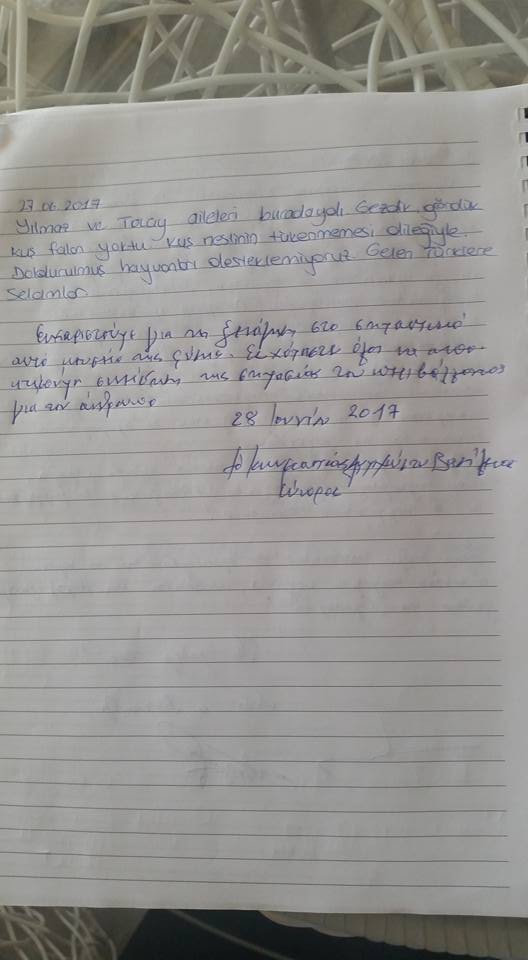 27.06.2017
Yılmaz ve Tolay aileleri buradaydı Gezdik, gördük
kuş falan yoktu kuş neslinin tükenmemesi dileğiyle.
Doldurulmuş hayvanları desteklemiyoruz Gelen Türklere
Selamlar
Ευχαριστούμε για τη ξενάγηση στο σημαντικό
αυτό μουσείο της φύσης. Ευχόμαστε όλοι να
της σημασίας του περιβάλλοντος
για τον άνθρωπο
28 Ιουνίου 2017
Κύπρος